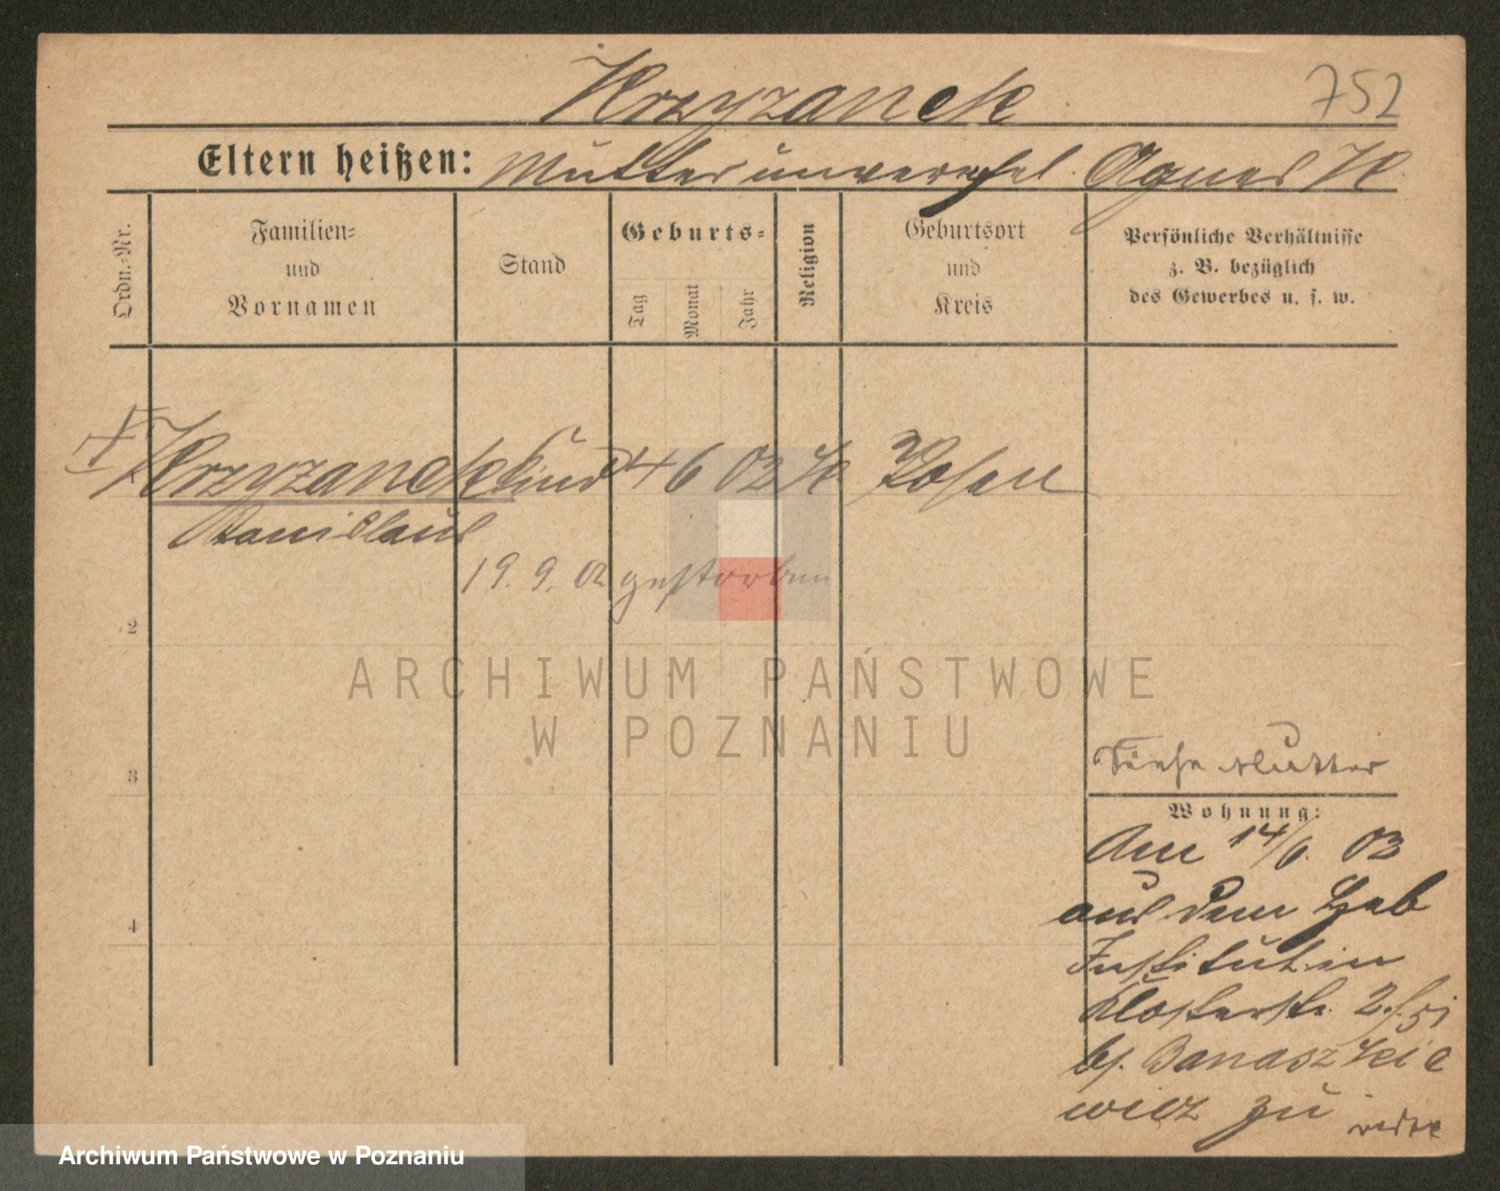 Krzyzanek
752
Eltern heißen: Mutter unverehel. Agnes K.
Ordn.-Nr.
Familien-
und
Vornamen
Stand
Geburts-
Tag
Monat
Jahr
Religion
Geburtsort
und
Kreis
Persönliche Verhältnisse
z. B. bezüglich
des Gewerbes u. s. w.
Krzyzanek Kind 4 6 02 K Posen
Stanislaus
19. 9. 02 gestorben
2
3
4
Siehe Mutter
Wohnung:
Am 14/6. 02
aus dem Heb
Institut in
Klosterstr.
bj. Banaszkie
wicz zu
ARCHIWUM PAŃSTWOWE
W POZNANIU
Archiwum Państwowe w Poznaniu